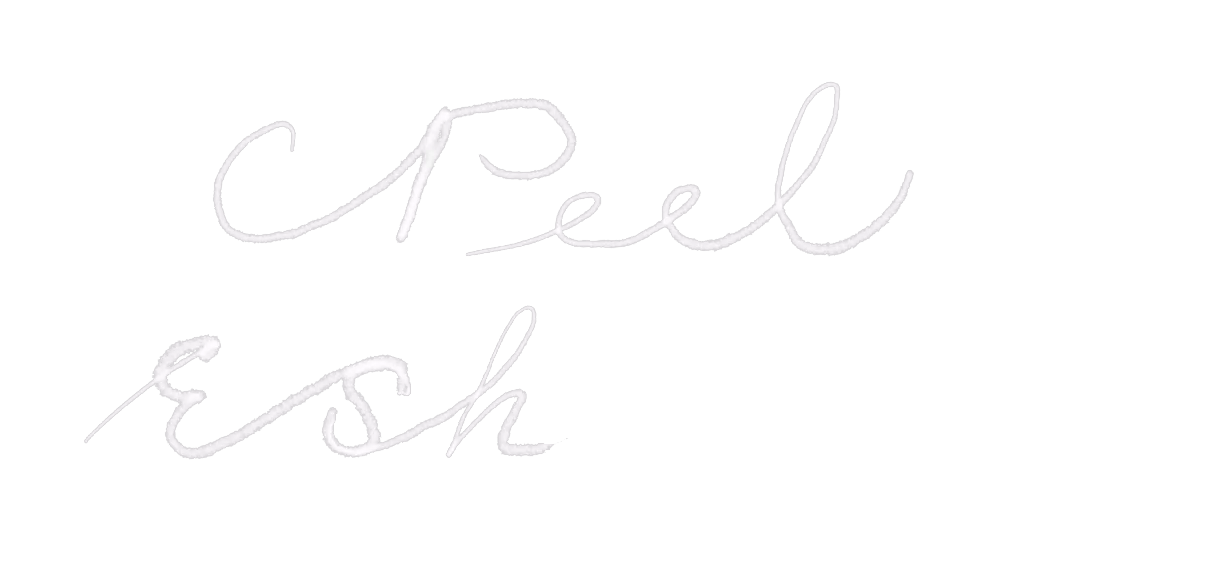 Peel
Esh